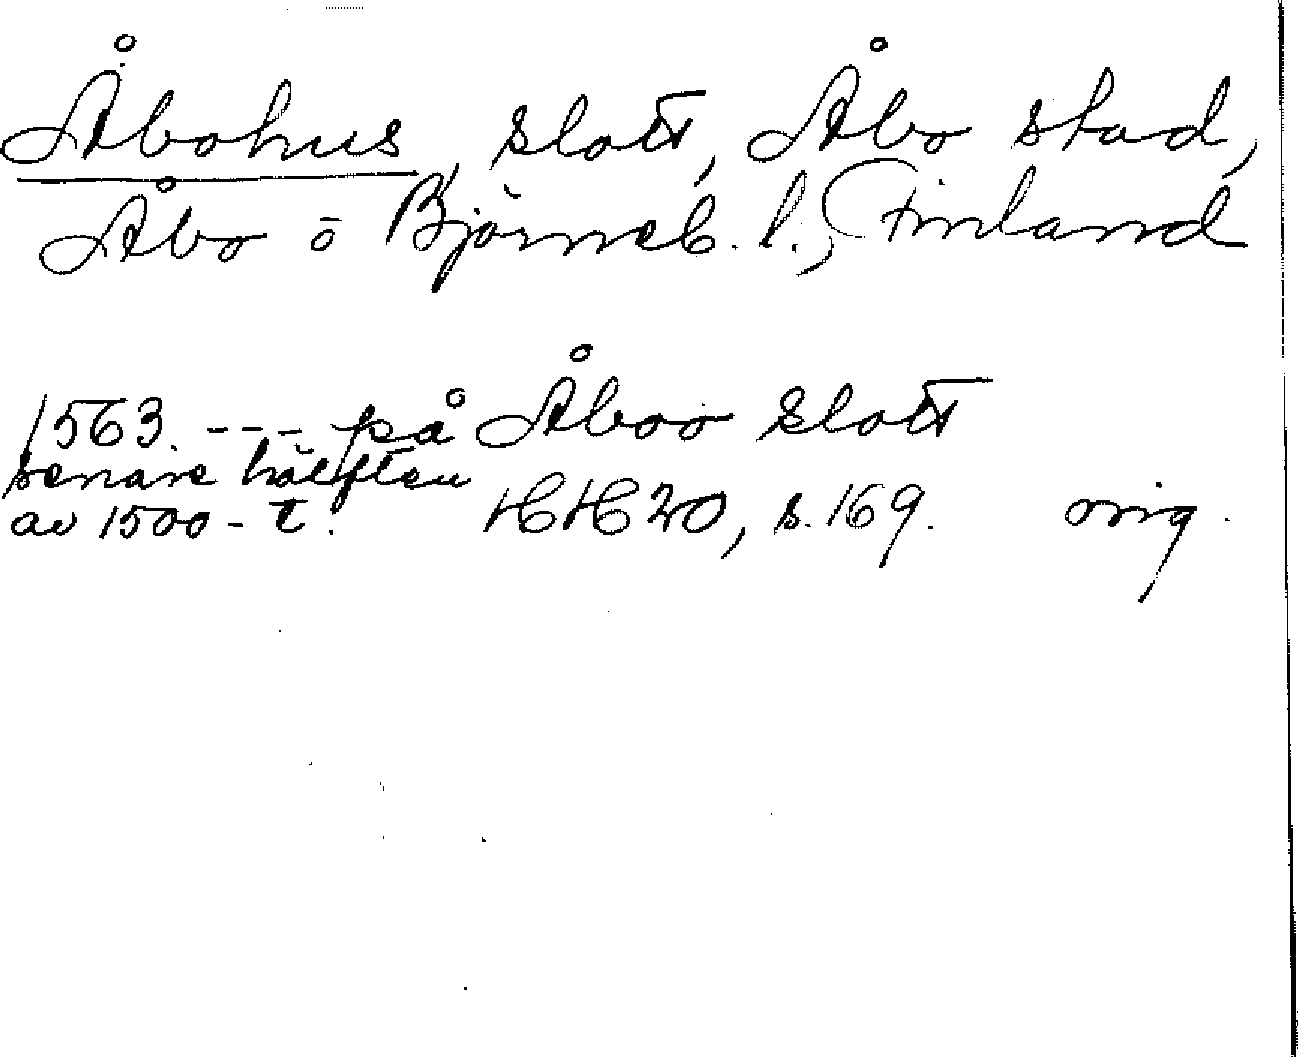 Åbohus, slott, Åbo stad,
Åbo o Björneb. l., Finland
1563. --- på Åboo slott
senare hälften
av 1500-t. HH 20, s. 169. orig.